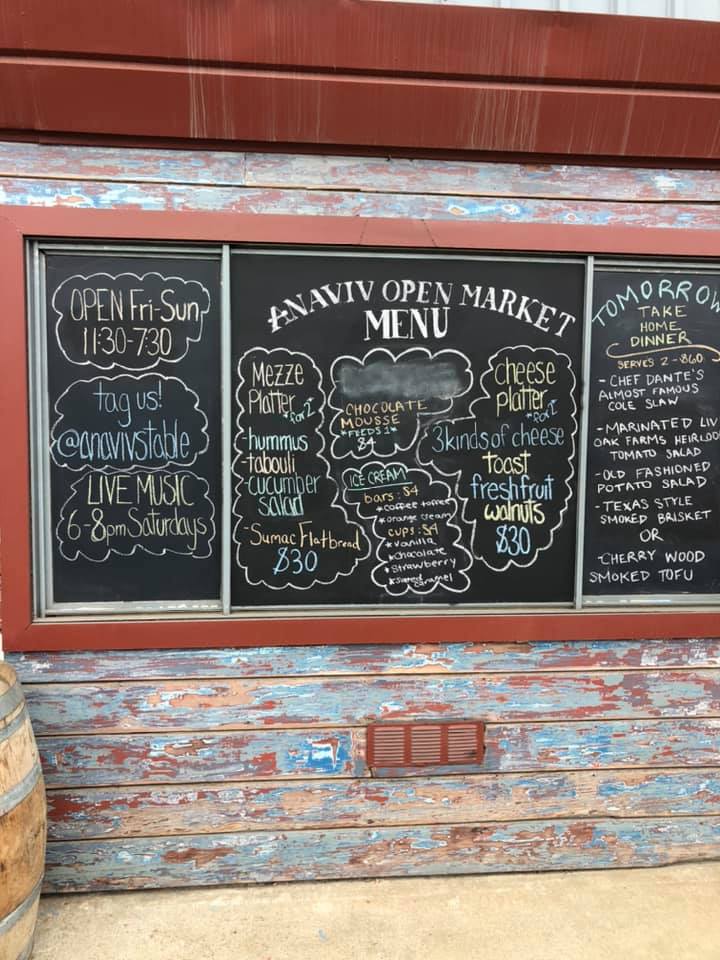 OPEN Fri-Sun
11:30-7:30
tag us!
@anavivstable
LIVE MUSIC
6-8pm Saturdays
ANAVIV OPEN MARKET
MENU
Mezze
Platter *for 2*
-hummus
-tabouli
-cucumber
salad
-Sumac Flatbread
$30
CHOCOLATE
MOUSSE
*FEEDS 1*
$4
ICE CREAM
bars: $4
*coffee toffee
*orange cream
cups: $4
*vanilla
*chocolate
*strawberry
*salted caramel
cheese
platter *for 2*
3 kinds of cheese
toast
fresh fruit
walnuts
$30
TOMORROW
TAKE
HOME
DINNER
SERVES 2 - $60
- CHEF DANTE'S
ALMOST FAMOUS
COLE SLAW
- MARINATED LIV
OAK FARMS HEIRLOO
TOMATO SALAD
- OLD FASHIONED
POTATO SALAD
- TEXAS STYLE
SMOKED BRISKET
OR
CHERRY WOOD
SMOKED TOFU